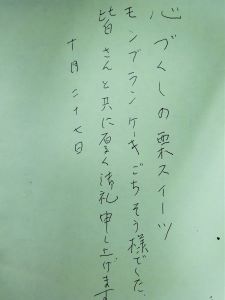 心づくしの栗スイーツ
モンブランケーキごちそう様でした、
皆さんと共に厚く御礼申し上げます
十月二十七日